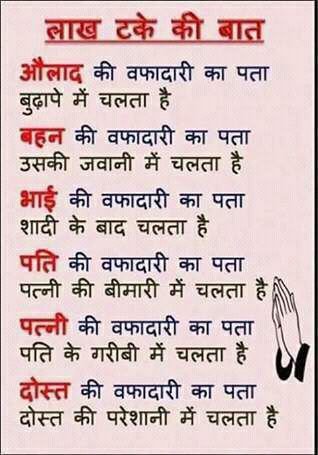 लाख टके की बात
औलाद की वफादारी का पता
बुढ़ापे में चलता है
बहन की वफादारी का पता
उसकी जवानी में चलता है
भाई की वफादारी का पता
शादी के बाद चलता है
पति की वफादारी का पता
पत्नी की बीमारी में चलता है
पत्नी की वफादारी का पता
पति के गरीबी में चलता है
दोस्त की वफादारी का पता
दोस्त की परेशानी में चलता है